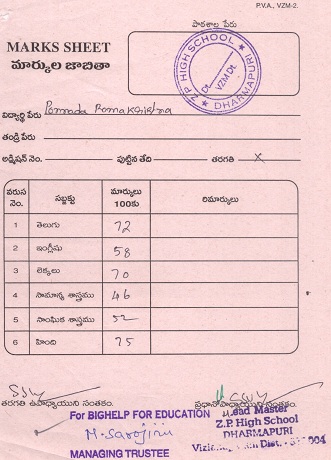 P.V.A., VZM-2.
పాఠశాల పేరు
MARKS SHEET
మార్కుల జాబితా
Z.P. HIGH SCHOOL
Dt.
VZM Dt.
★ DHARMAPURI ★
విద్యార్థి పేరు Pommada Ramakrishna
తండ్రి పేరు
అడ్మిషన్ నెం. పుట్టిన తేది తరగతి X
వరుస నెం. సబ్జక్టు మార్కులు 100కు రిమార్కులు
1 తెలుగు 72
2 ఇంగ్లీషు 58
3 లెక్కలు 70
4 సామాన్య శాస్త్రము 46
5 సాంఘిక శాస్త్రము 52
6 హింది 75
తరగతి ఉపాధ్యాయుని సంతకం. ప్రధానోపాధ్యాయుని సంతకం.
For BIGHELP FOR EDUCATION
M. Sarojini
MANAGING TRUSTEE
Head Master
Z.P. High School
DHARMAPURI